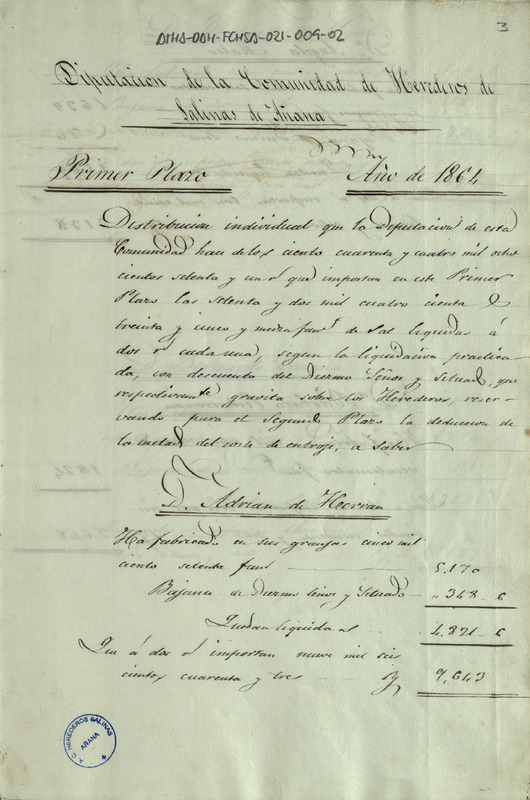 3
ATHA-DAH-FCHSA-021-009-02
Diputacion de la Comunidad de Herederos de
Salinas de Añana
Primer Plazo Año de 1864
Distribucion individual que la Diputacion de esta
Comunidad hace de los ciento cuarenta y cuatro mil ocho
cientos setenta y un r.^s que importan en este Primer
Plazo las setenta y dos mil cuatro cienta
treinta y cinco y media fan.^s de sal liquidas á
dos r.^s cada una, segun la liquidacion practica
da, con descuento del Diezmo Señor y Setrado, que
respectivam.^te gravita sobre los Herederos, reser-
vando para el Segundo Plazo la deduccion de
la mitad del coste de entroje, a saber
D. Adrian de Herran
Ha fabricado en sus granjas cinco mil
ciento setenta fan.^s 5.170
Bajana de Diezmo Señor y Setrado " 348 - 6
Quedan liquidas 4.821 - 6
Que á dos r.^s importan nueve mil seis
cientos cuarenta y tres 9.643
A. C. HEREDEROS SALINAS
AÑANA